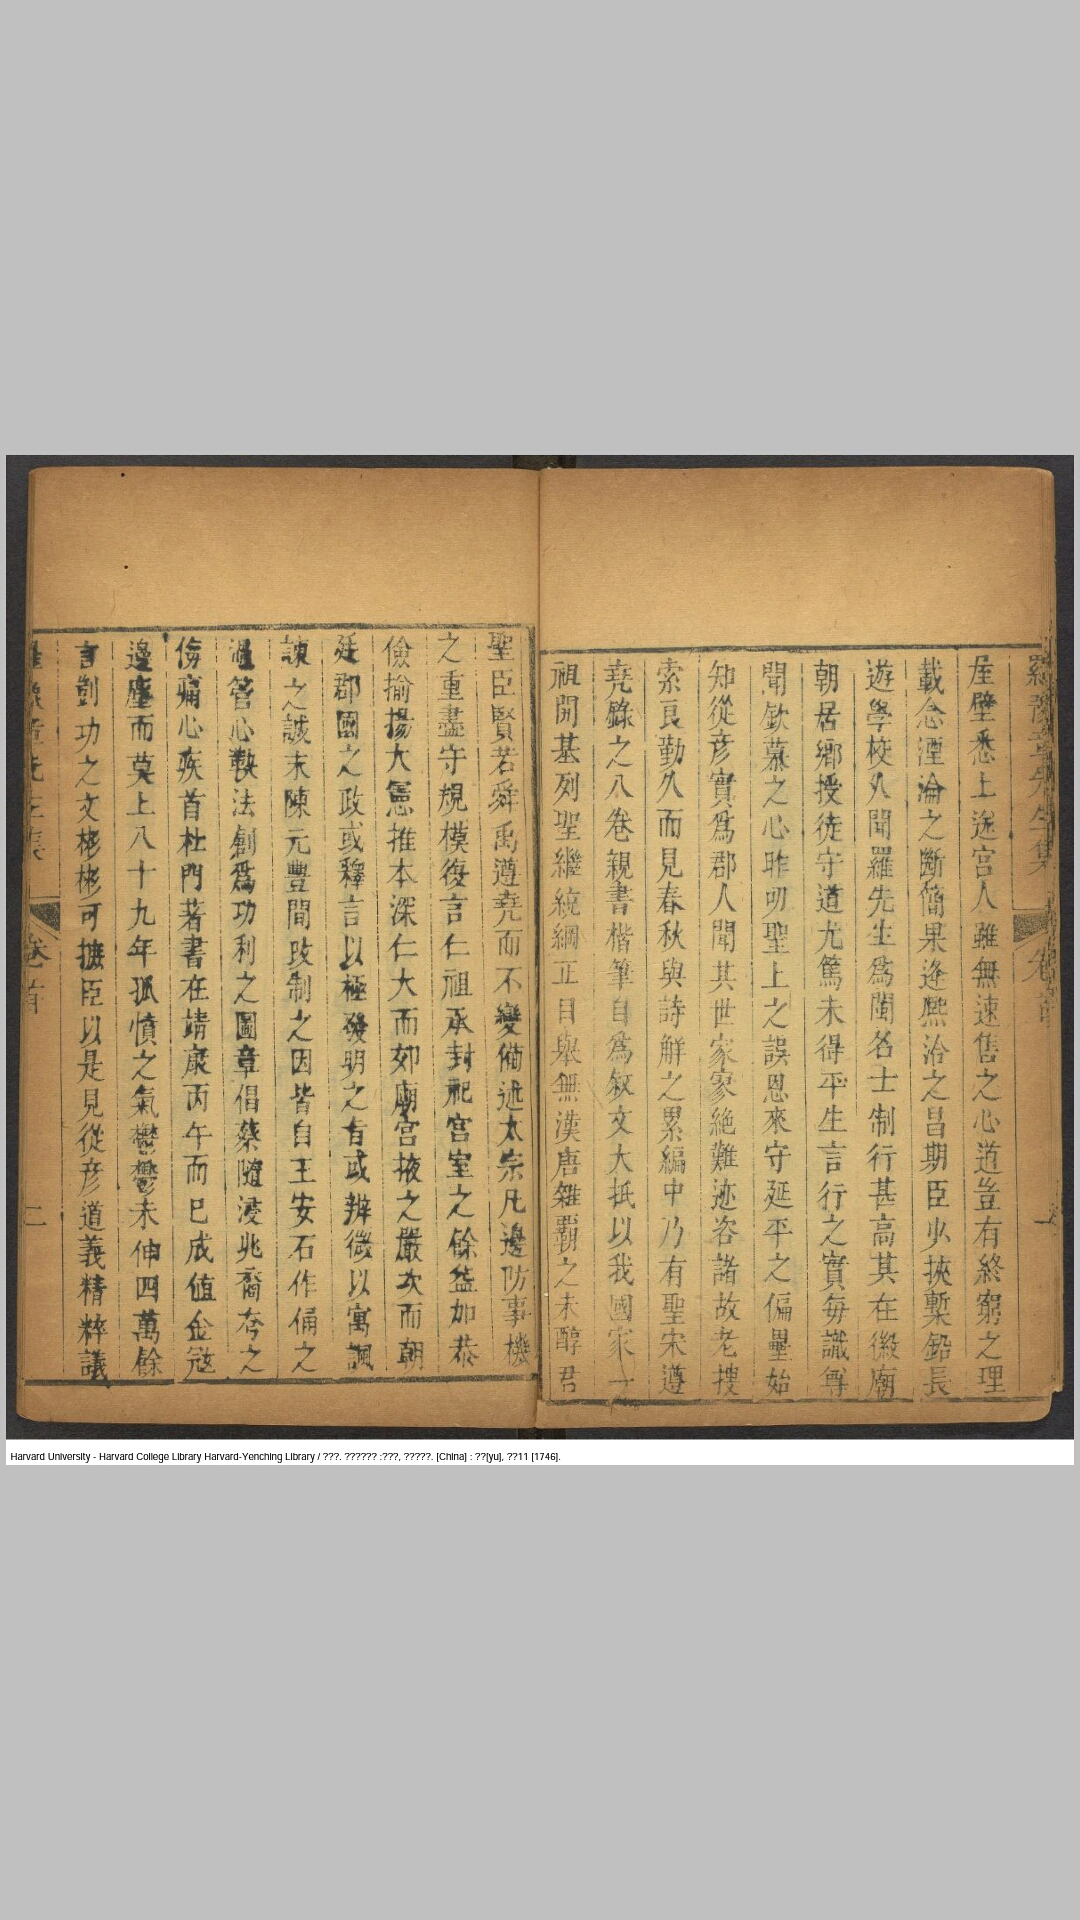 羅豫章先生集
卷首
一
座壁悉上送宫人雖無速售之心道豈有終窮之理
載念湮淪之斷簡果逢熙洽之昌期臣少挾槧鉛長
遊學校久聞羅先生爲閩名士制行甚高其在徽廟
朝居鄉授徒守道尤篤未得平生言行之實每識尊
聞欽慕之心昨叨聖上之誤恩來守延平之偏壘始
知從彦實爲郡人聞其世家家絶難迹咨諸故老搜
索良勤久而見春秋與詩解之累編中乃有聖宋遵
堯錄之八卷親書楷筆自爲叙文大抵以我國家一
祖開基列聖繼統綱正目舉無漢唐雜覇之未醇君
聖臣賢若舜禹遵堯而不變備述太宗凡邊防事機
之重盡守規模復言仁祖承封祀宫室之餘益加恭
儉揄揚大憲推本深仁大而郊廟宫掖之嚴次而朝
廷郡國之政或釋言以極發明之旨或辨微以寓諷
諫之誠末陳元豐間改制之因皆自王安石作俑之
過管心鞅法創爲功利之圖章倡蔡隨浸兆裔夸之
侮痛心疾首杜門著書在靖康丙午而已成值金寇
邊塵而莫上八十九年孤憤之氣鬱鬱未伸四萬餘
言剴功之文彬彬可摭臣以是見從彦道義精粹議
羅豫章先生集
卷首
二
Harvard University - Harvard College Library Harvard-Yenching Library / ???. ?????? :???, ?????. [China] : ??[yu], ??11 [1746].